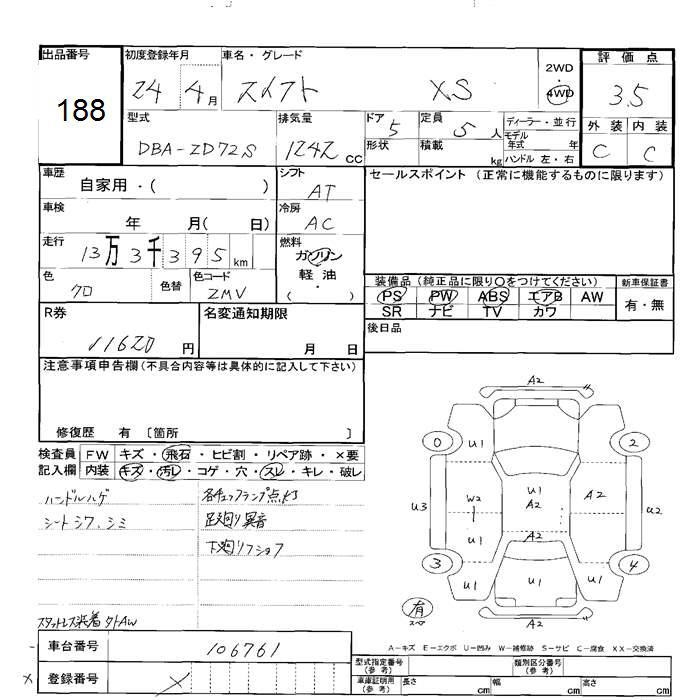 出品番号 初度登録年月 車名・グレード 評価点
188 24 4月 スイフト XS 2WD ・ 4WD 3.5
型式 排気量 ドア 定員 ディーラー・並行 外装 内装
DBA-ZD72S 1242 CC 5 5人 モデル年式 年 C C
形状 積載 kg ハンドル 左・右
車歴 シフト セールスポイント(正常に機能するものに限ります)
自家用・( ) AT
車検 冷房
年 月( 日) AC
走行 燃料
13万3千395km ガソリン
軽油
( ・ )
色 色替 色コード
クロ ZMV
装備品(純正品に限り○をつけてください) 新車保証書
PS PW ABS エアB AW 有・無
SR ナビ TV カワ
R券 名変通知期限 後日品
11620円 月 日
注意事項申告欄(不具合内容等は具体的に記入して下さい)
修復歴 有 〔箇所 〕
検査員 FW キズ・飛石・ヒビ割・リペア跡・×要
記入欄 内装 キズ・汚レ・コゲ・穴・スレ・キレ・破レ
ハンドルハゲ 各チェックランプ点灯
シートシワ、シミ 足廻り異音
下廻り
スタットレス装着 外AW
A2
0 U1 2
U1
U3 W2 A2 A2 U2
A2
3 U1 4
U1 U1 U1
有 スペア A2
A-キズ E-エクボ U-凹み W-補修跡 S-サビ C-腐食 XX-交換済
車台番号 106761
登録番号 X
型式指定番号(参考) 類別区分番号(参考)
車庫証明用(参考) 長さ cm 幅 cm 高さ cm